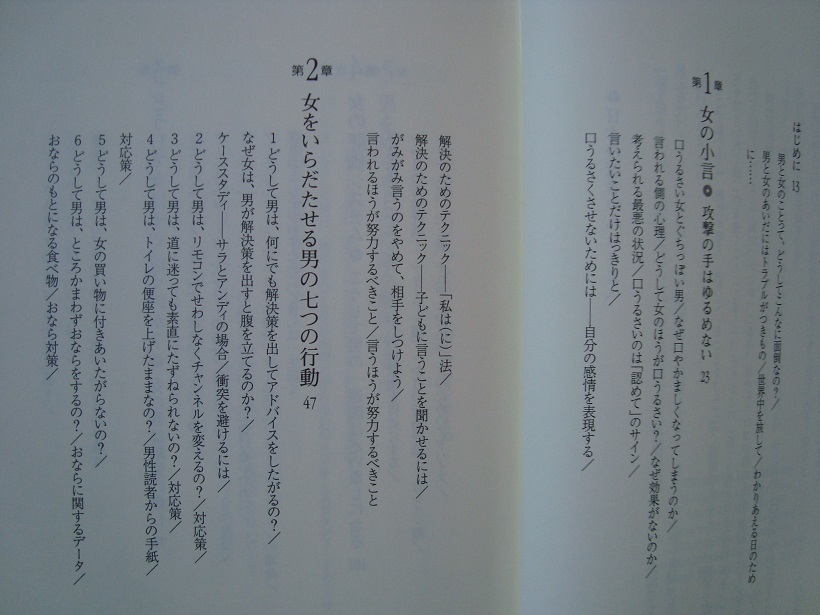 はじめに 13
男と女のことって、どうしてこんなに面倒なの?/
男と女のあいだにはトラブルがつきもの/世界中を旅して/わかりあえる日のため
に……
第1章 女の小言◉攻撃の手はゆるめない 23
口うるさい女とぐちっぽい男/なぜ口やかましくなってしまうのか/
言われる側の心理/どうして女のほうが口うるさい?/なぜ効果がないのか/
考えられる最悪の状況/口うるさいのは「認めて」のサイン/
言いたいことだけはっきりと/
口うるさくさせないためには——自分の感情を表現する/
解決のためのテクニック——「私は(に)」法/
解決のためのテクニック——子どもに言うことを聞かせるには/
がみがみ言うのをやめて、相手をしつけよう/
言われるほうが努力するべきこと/言うほうが努力するべきこと
第2章 女をいらだたせる男の七つの行動 47
1 どうして男は、何にでも解決策を出してアドバイスをしたがるの?/
なぜ女は、男が解決策を出すと腹を立てるのか?/
ケーススタディ——サラとアンディの場合/衝突を避けるには/
2 どうして男は、リモコンでせわしなくチャンネルを変えるの?/対応策/
3 どうして男は、道に迷っても素直にたずねられないの?/対応策/
4 どうして男は、トイレの便座を上げたままなの?/男性読者からの手紙/
対応策/
5 どうして男は、女の買い物に付きあいたがらないの?/
6 どうして男は、ところかまわずおならをするの?/おならに関するデータ/
おならのもとになる食べ物/おなら対策/